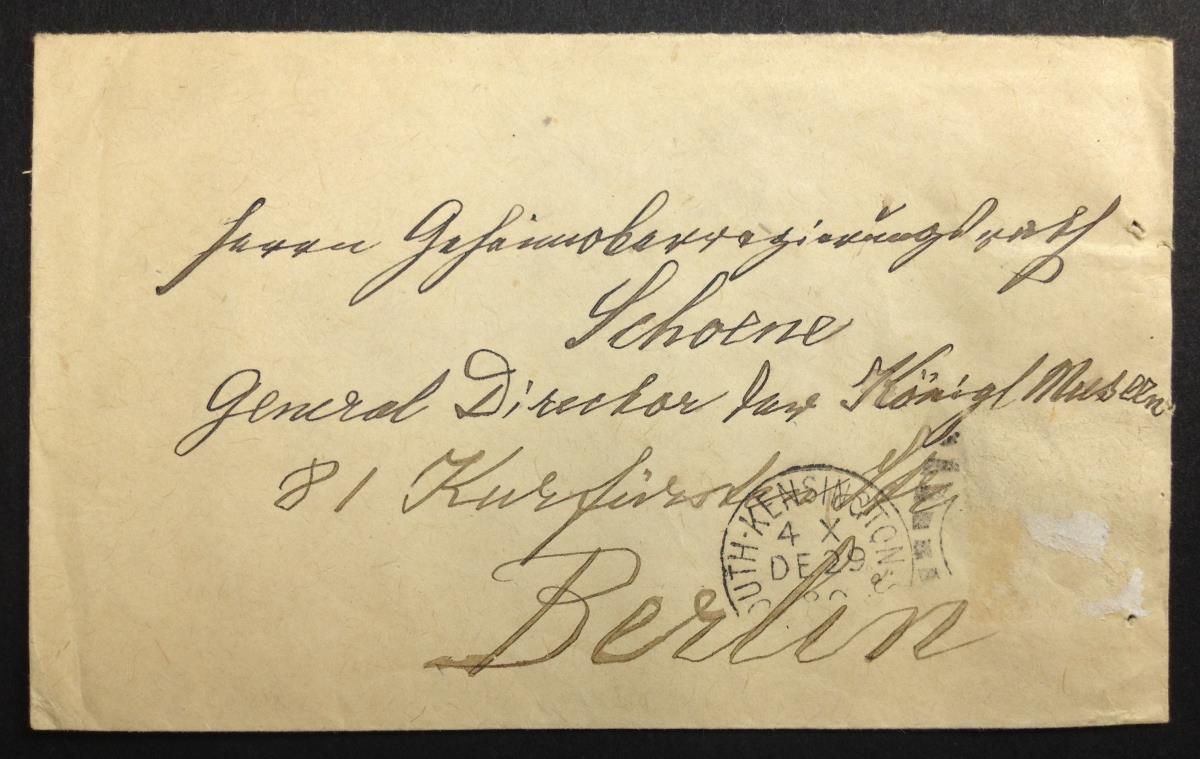 Herrn Geheimoberregierungsrath
Schoene
General Director der Königl Museen
81 Kurfürsten Str
Berlin
UTH·KENSINGTON·S
4 X
DE 29